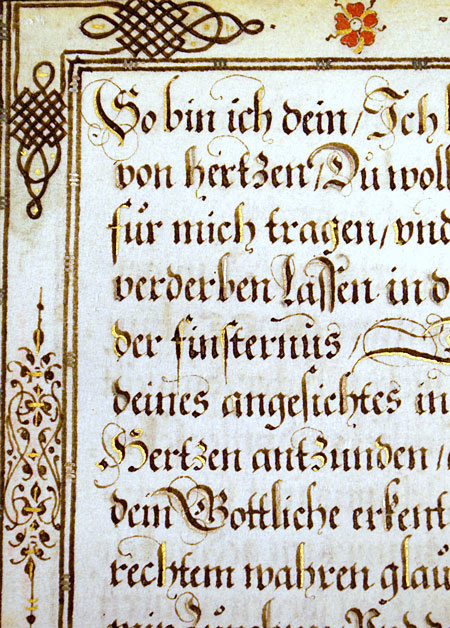 So bin ich dein / Ich
von hertzen / Du woll
für mich tragen / vnd
verderben lassen in d
der finsternus /
deines angesichtes in
Hertzen antzunden /
dein Gottliche erkent
rechtem wahren glau